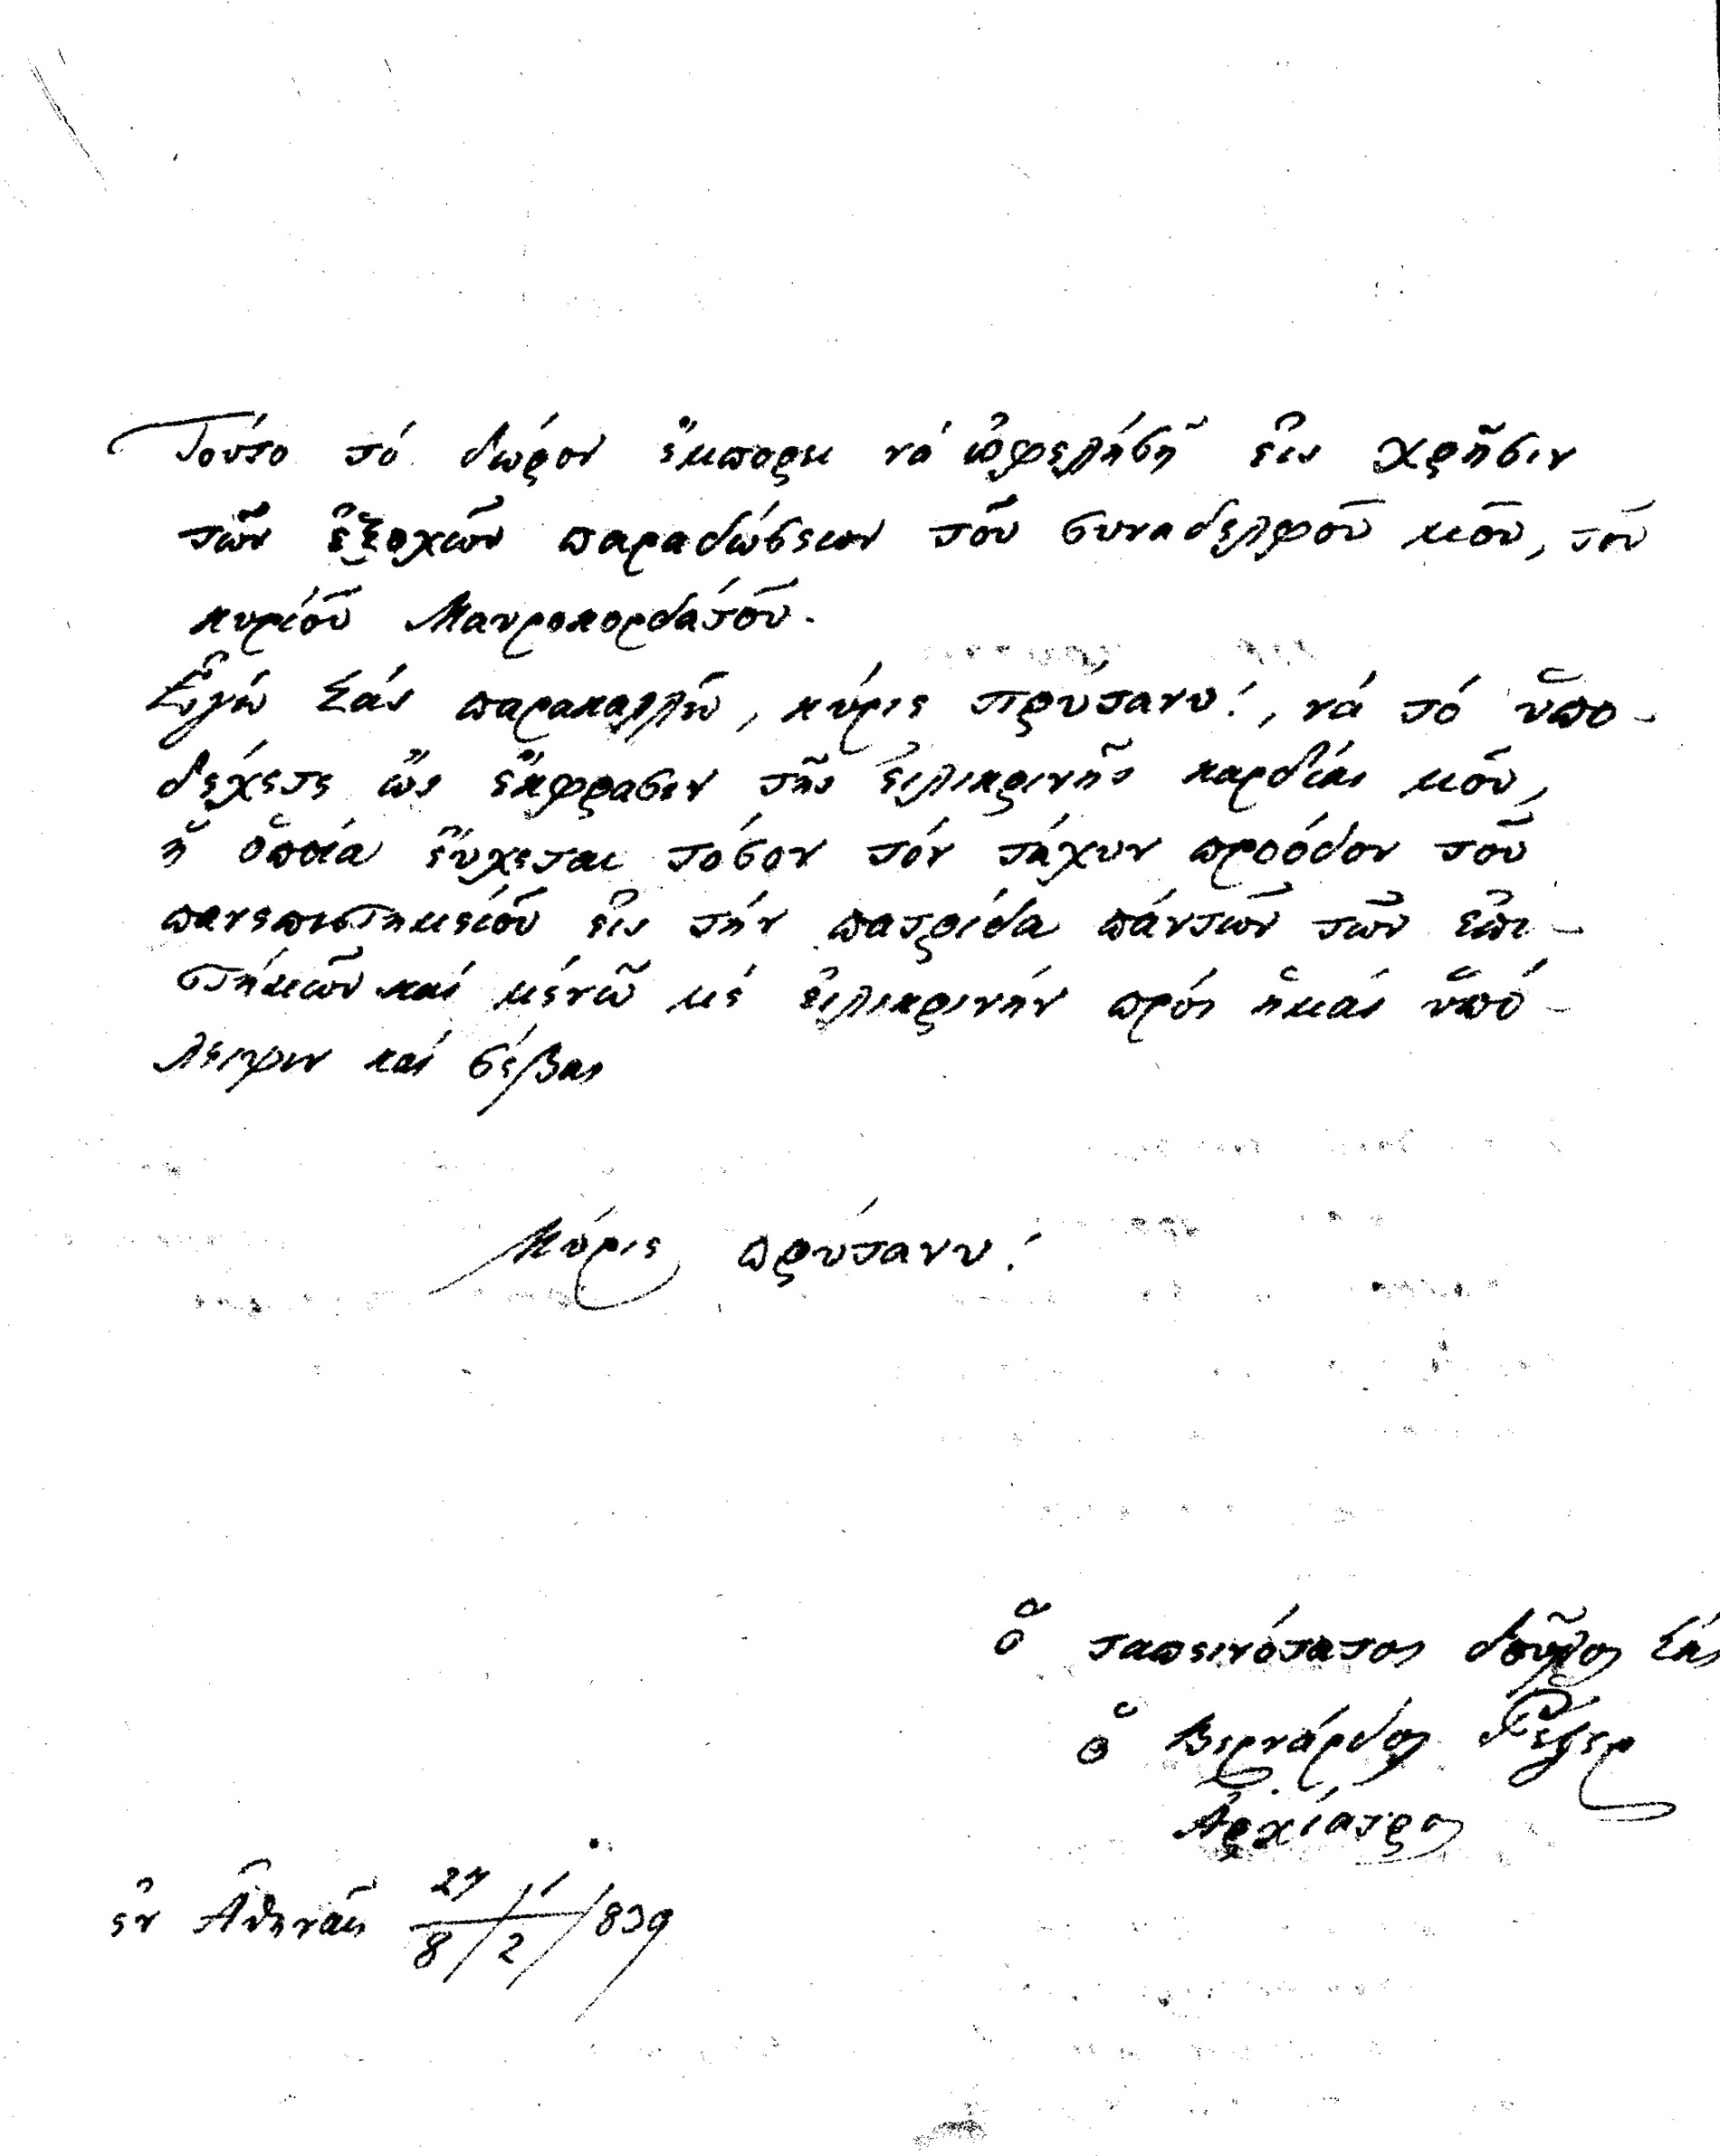 Τούτο τό δώρον ἔμπορει νά ὠφελήσῃ εἰς χρῆσιν
τῶν ἐξοχῶν παραδώσεων τοῦ συναδελφοῦ μοῦ, τοῦ
κυρίοῦ Μαυροκορδάτοῦ.
Ἐγώ Σάς παρακαλλῶ, κύριε πρύτανυ!, νά τό ὑπο-
δέχετε ὥς ἔκφρασιν τῆς εἰλικρινῆς καρδίας μοῦ,
ἡ ὁποία εὔχεται τόσον τόν τάχυν προόδον τοῦ
πανεπιστημείοῦ εἰς τήν πατρίδα πάντῶν τῶν ἐπι-
στήμῶν καί μένῶ μέ εἰλικρινήν πρός ἡμάς ὑπό-
λειψιν καί σέβας
Κύριε πρύτανυ!
ὁ ταπεινότατος δοῦλος Σάς
ὁ Βερνάρδος Ῥέζερ
Ἀρχίατρος
ἐν Ἀθηναῖς 27/1
8/2/839